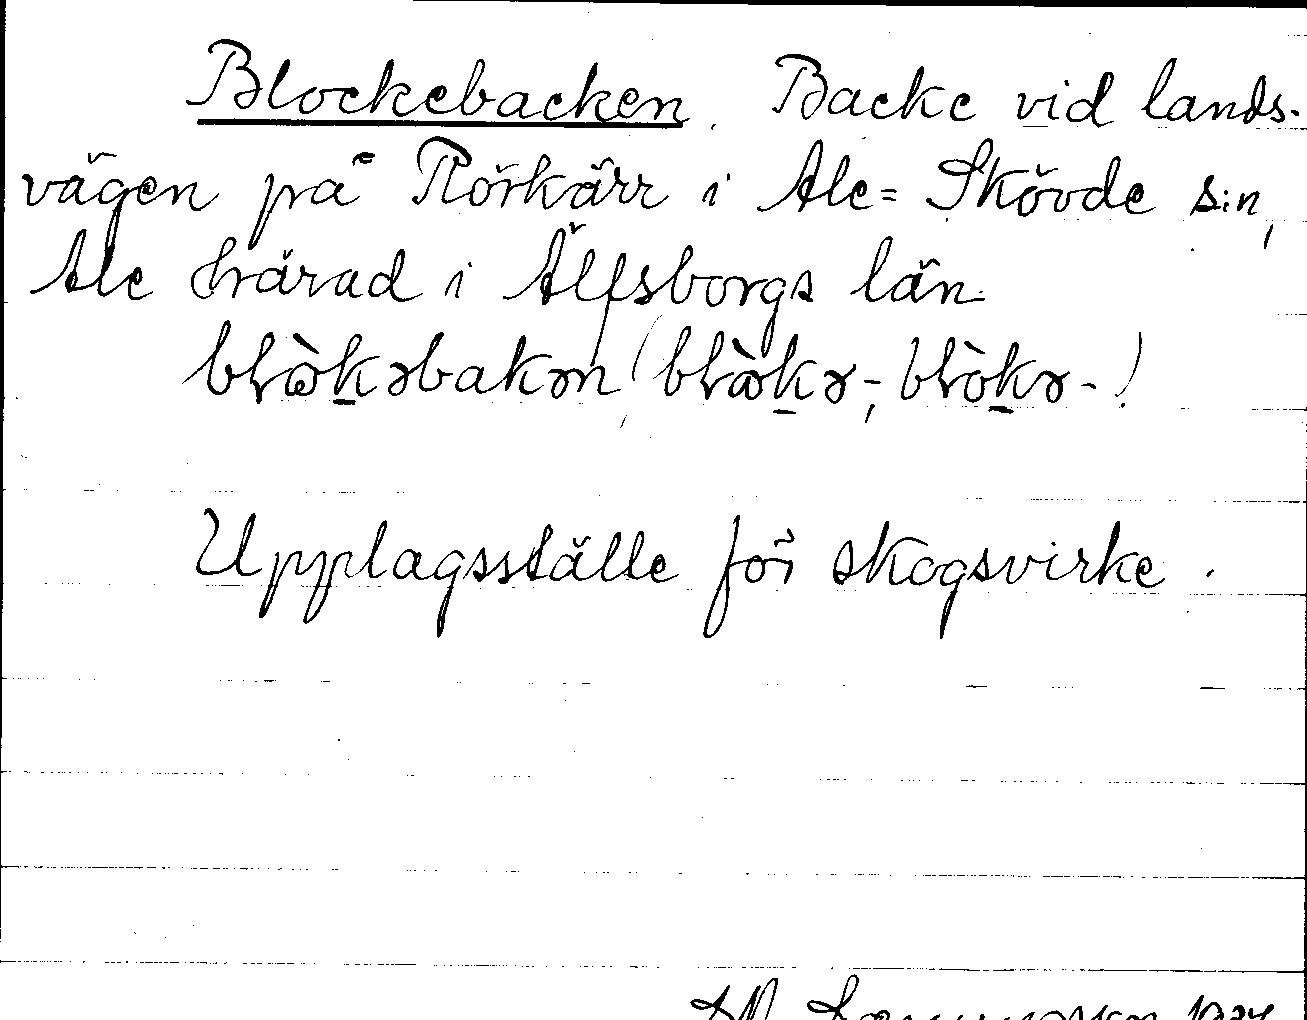 Blockebacken. Backe vid lands-
vägen på Rörkärr i Ale=Skövde s:n,
Ale härad i Älfsborgs län.
Upplagsställe för skogsvirke.